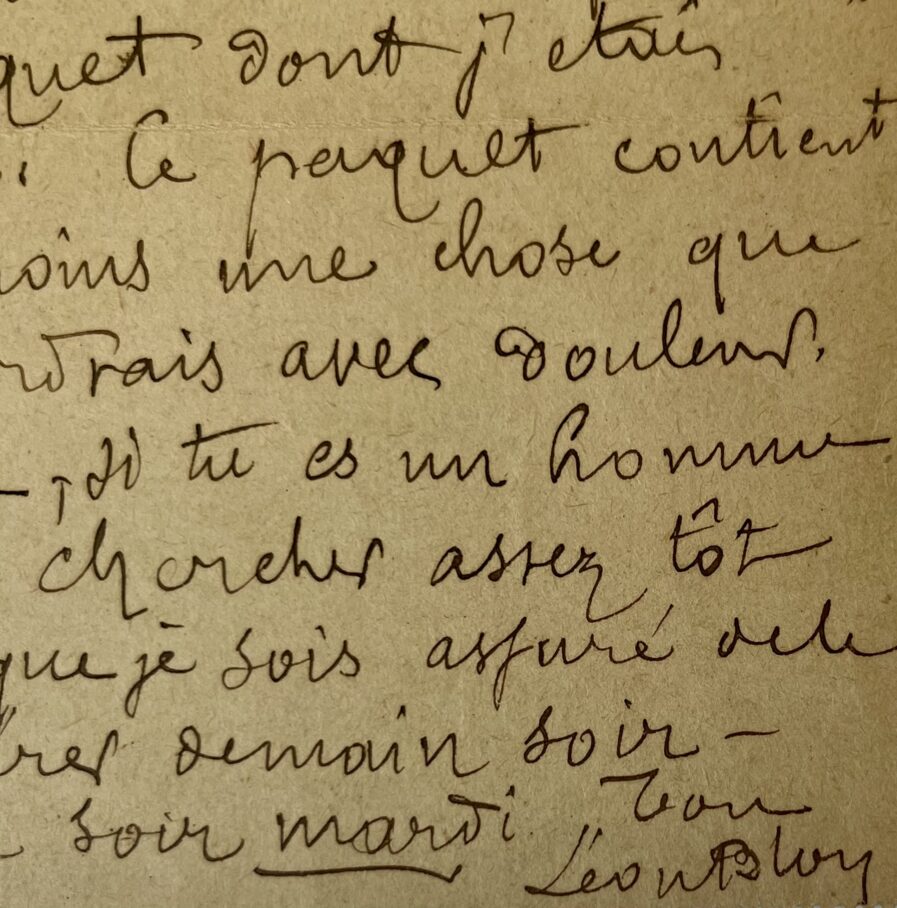 quet dont j'étais
. Ce paquet contient
moins une chose que
rdrais avec douleur.
— , si tu es un homme
chercher assez tôt
que je sois assuré de le
rer demain soir –
soir mardi. Ton
Léon Bloy